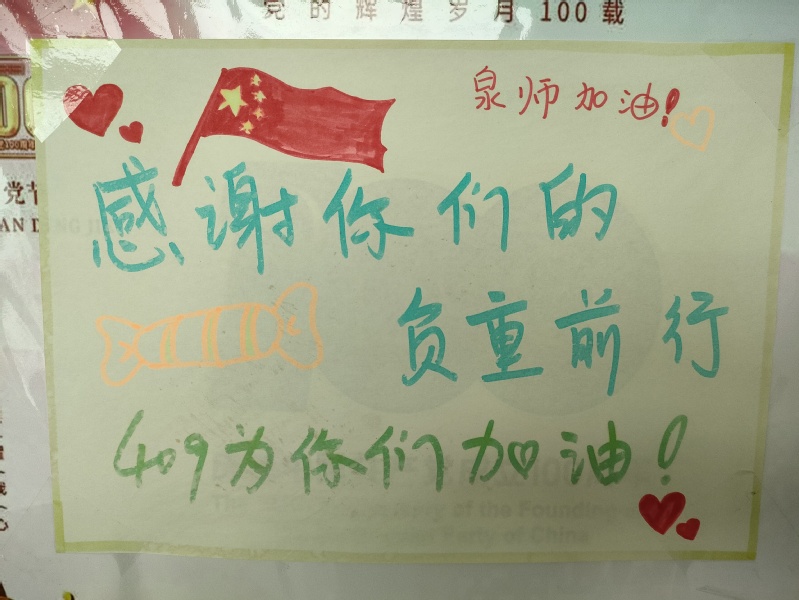 党的辉煌岁月100载
泉师加油!
感谢你们的
负重前行
409为你们加油!
of the Founding
Party of China